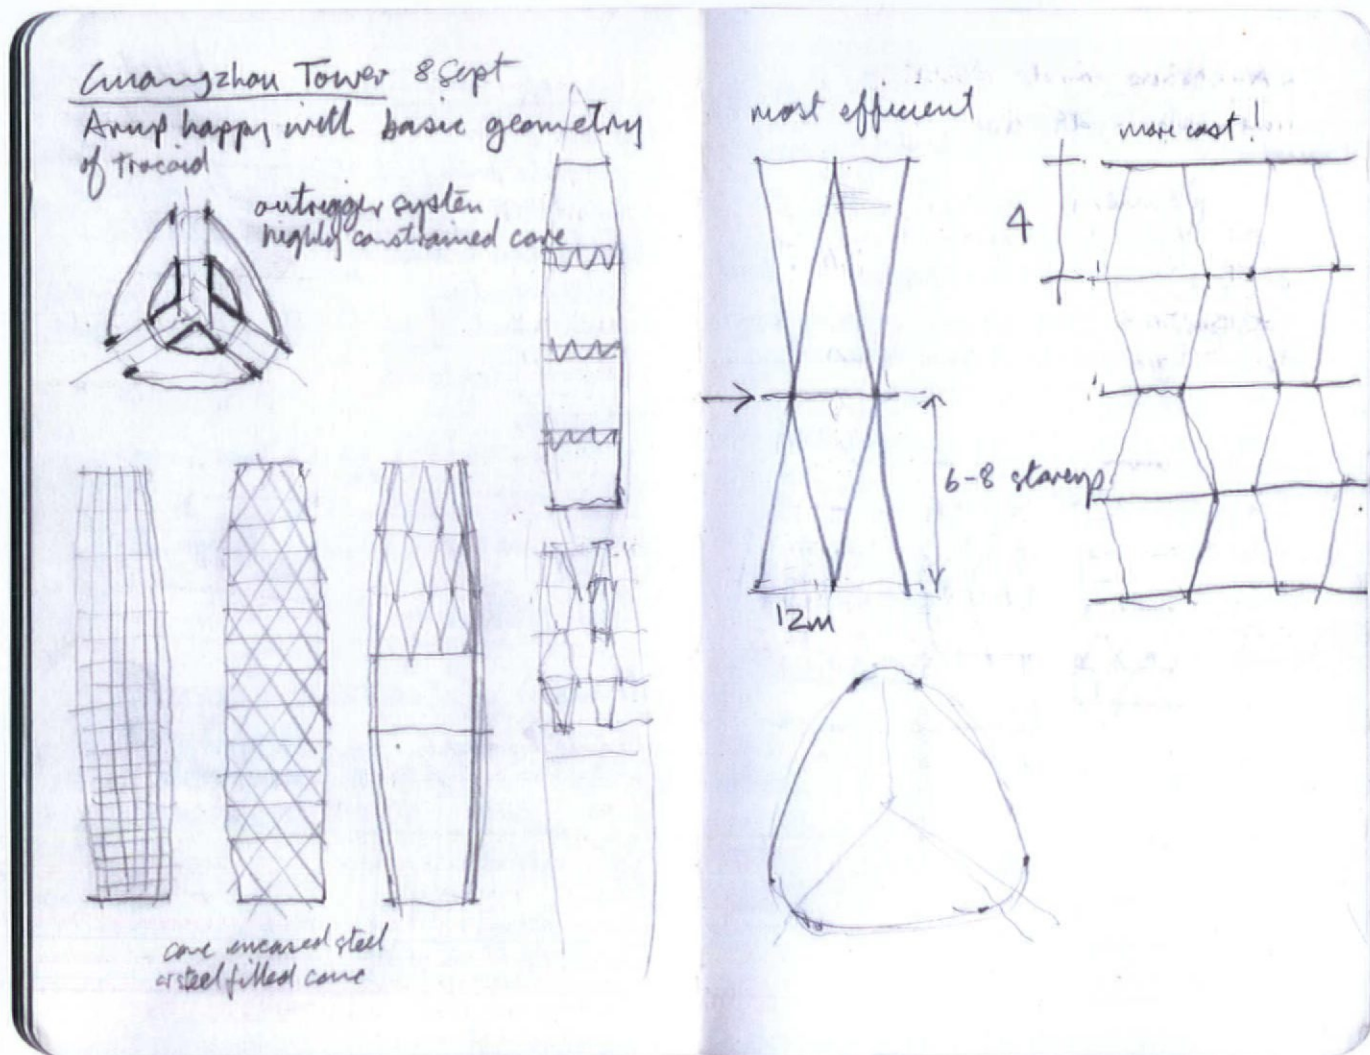 Guangzhou Tower 8 Sept
Arup happy with basic geometry
of tracoid
outrigger system
highly constrained core
conc encased steel
or steel filled conc
most efficient
6-8 storeys
12m
more cost!
4